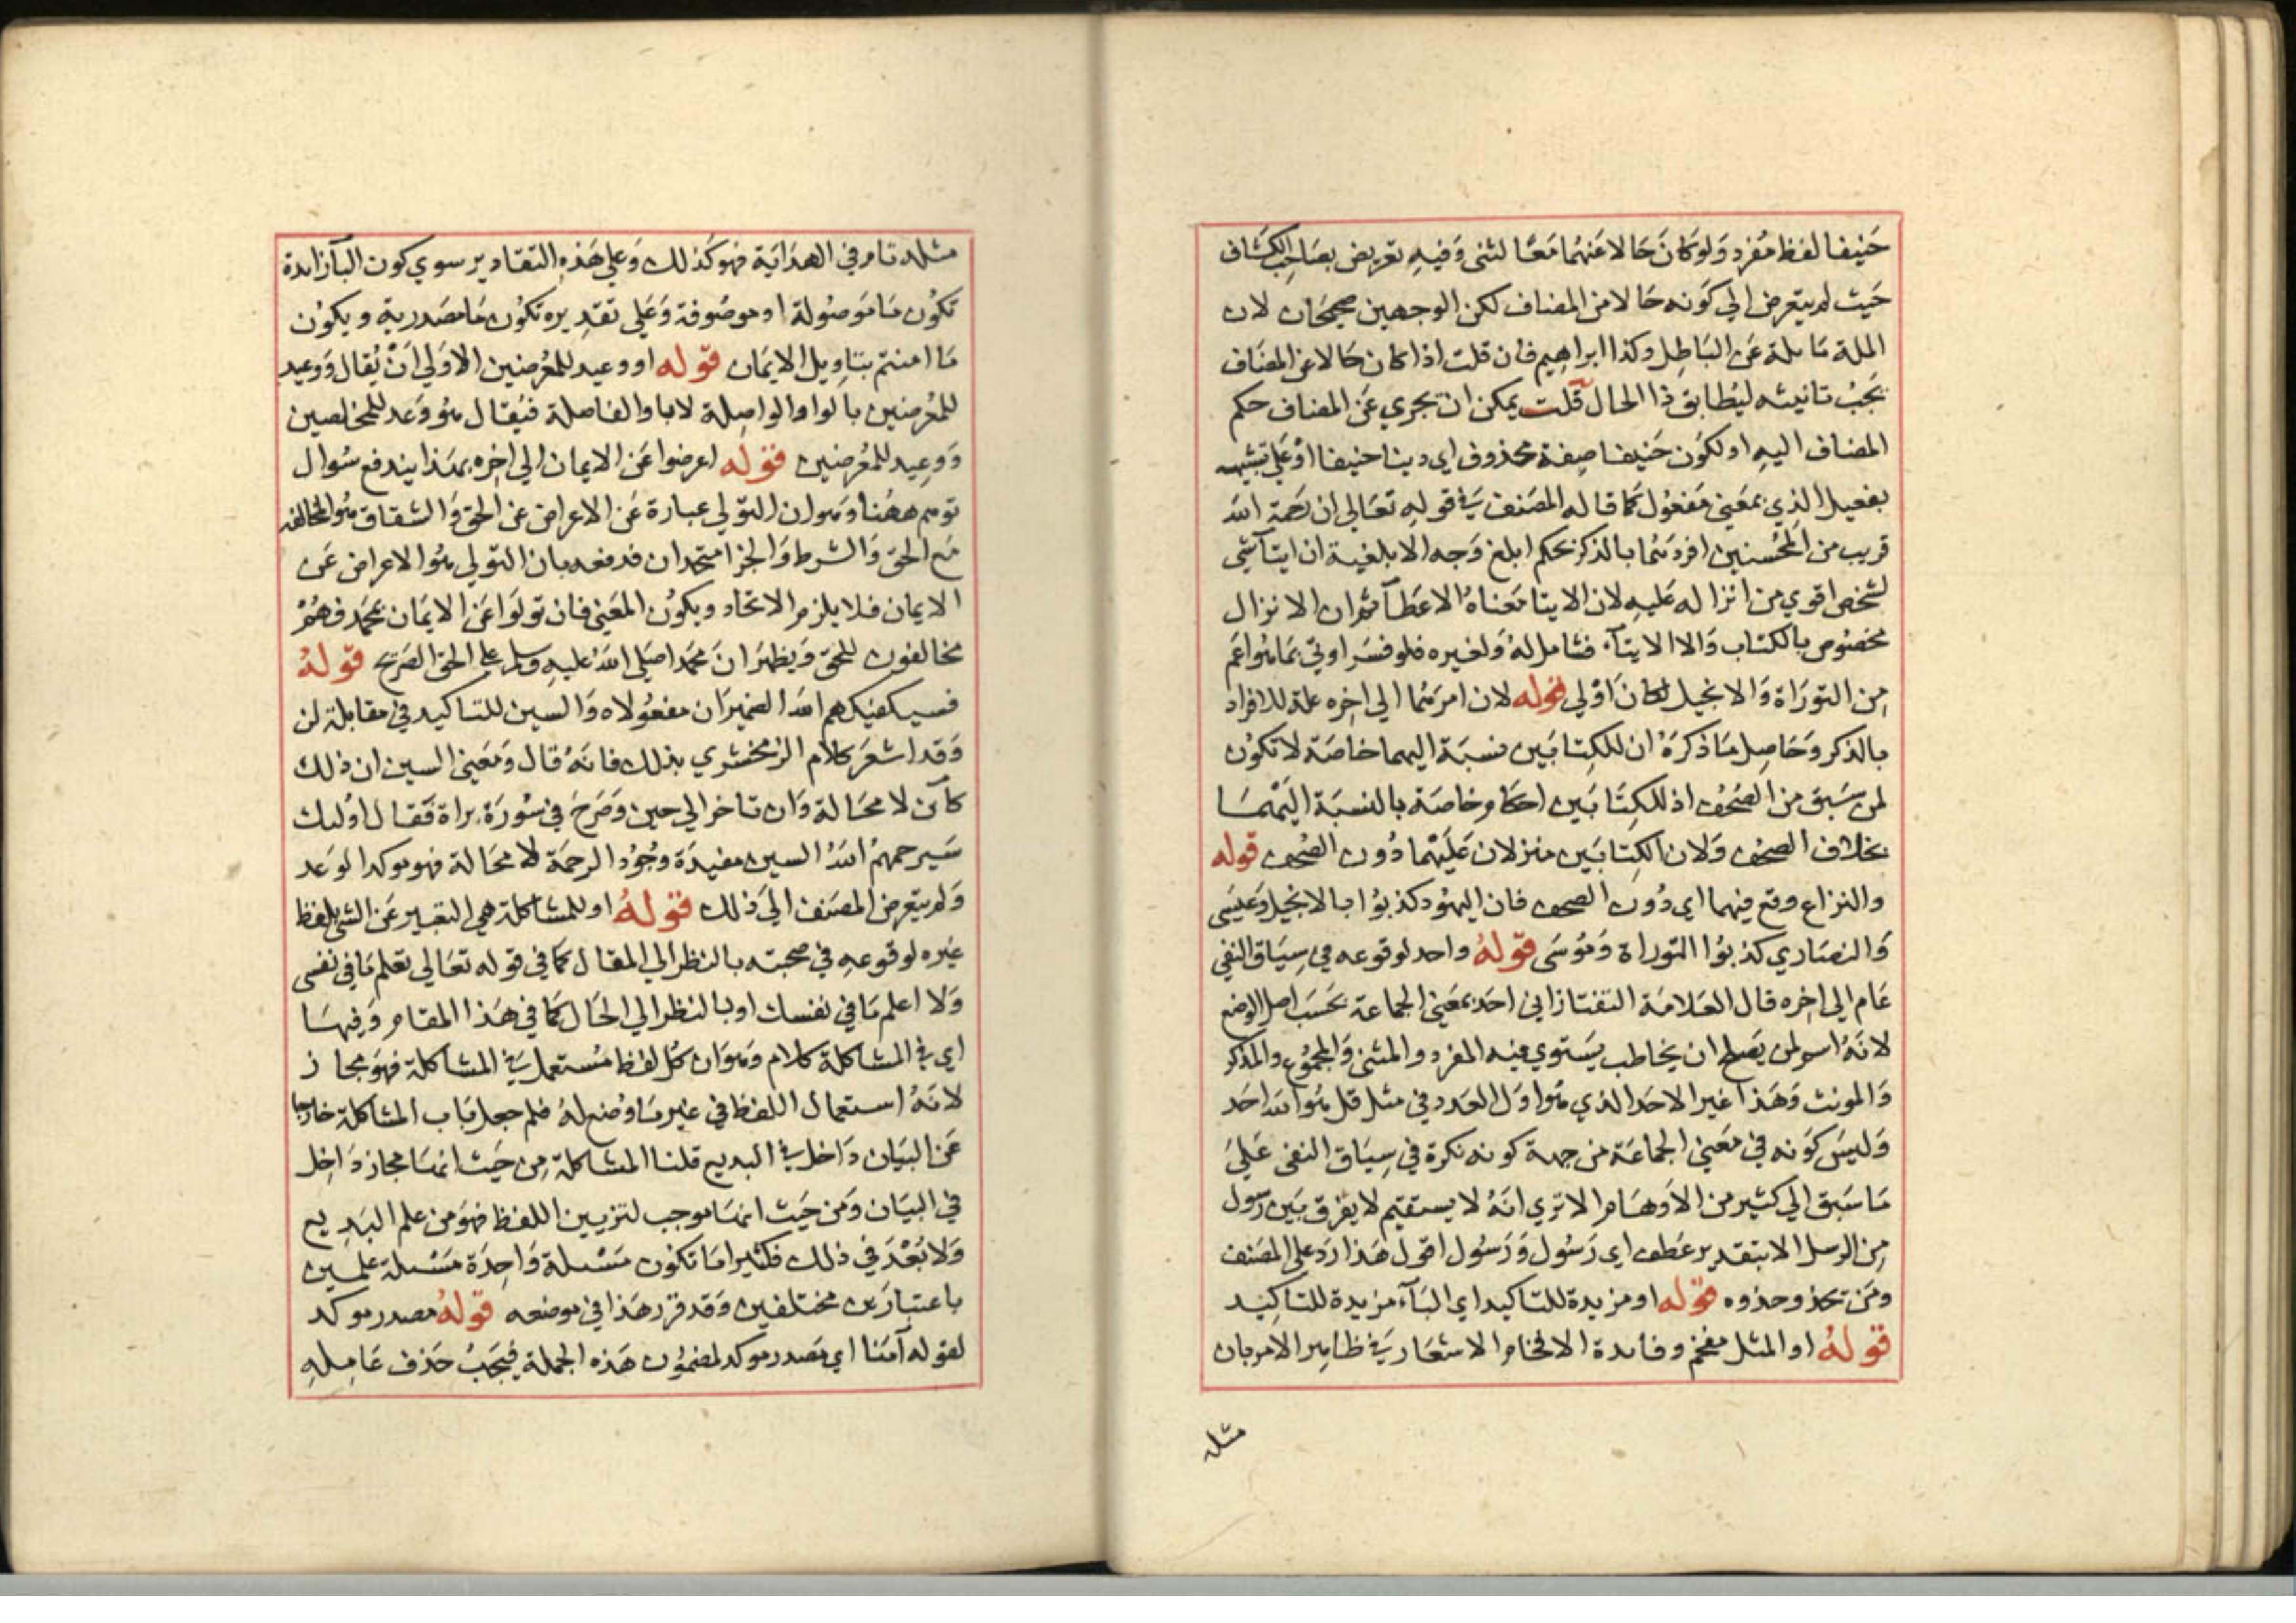 حَنيفا لفظ مُفرد وَلو كانَ حَالا عَنهُما مَعًا لثنى وَفيهِ تعريض بصَاحِب الكشّاف
حَيث لم يتعرض الي كَونه حَالا من المضاف لكن الوجهين صحيحَان لان
الملة مَايلة عَن البَاطِل وكذا ابراهِيم فان قلت اذا كان حَالا عن المضَاف
يجَبُ تانيثه ليُطابق ذا الحال قلت يمكن ان تجري عَن المضاف حكم
المضاف اليهِ او لكوَن حَنيفا صِفة محذوف اي دينا حنيفا اوْ عَلي تشبيهه
بفعيل الذي بمعَني مَفعُول كما قاله المصَنف في قولهِ تعَالي ان رحمَة الله
قريب من المحُسنين افردهُما بالذكر بحكم ابلغ وَجه الابلغية ان ايتآ شي
لشخص اقوي من انزاله عَليهِ لان الايتا مَعناهُ الاعطآ ثم ان الانزال
مخصُوص بالكتاب وَالا الايتآ فشامل لهُ ولغيره فلو فسَر اوتي بمَا هُوا عَم
مِن التورَاة وَالانجيل لكانَ اوْلي قوله لان امرهُما الي اخِره علة للافراد
بالذكر وَحَاصِل مَا ذكرَهُ ان للكِتابَين نسبَة اليهما خاصَة لا تكوُن
لمن سَبق من الصُحُف اذ للكِتَابَين احكام خاصَة بالنسبَة اليَهْمَا
بخلاف الصحف وَلان الكِتابَين منزلان عَليَهْما دُون الصُحف قوله
والنزاع وقع فيهما اي دُونَ الصحف فان اليهُود كذبوُا بالانجيل وَعيسَى
وَالنصَاري كذبوُا التوراة وَمُوسَى قولهُ واحد لوقوعه في سِيَاق النفي
عَام الي اخِره قال العَلامَة التفتازاني احَد بمعَني الجماعة بحَسَب اصل الوضع
لانَهُ اسم لمن يَصلح ان يخاطب يسَتوي فيه المفرد والمثنى وَالمجمُوع والمذكر
وَالمونث وَهَذا غير الاحَد الذي هُوا وَل العَدد في مثل قل هُوا لله احَد
وَليسَ كَونه في مَعَني الجماعَة من جهة كونه نكرة في سِيَاق النفى عَليَ
مَا سَبق الي كثير من الاَوهَام الا تري انَهُ لا يستقيم لا يفرق بَين رسول
مِن الرسل الا بتقدير عَطف اي رَسُول وَرَسُول اقول هَذا رَد على المصَنف
ومَن يحذو حذوه قوله او مزيدة للتاكيد اي البَآء مزيدة للتاكيْد
قولهُ او المثل مفخم وفايدة الافخام الاشعَار في ظاهِر الامر بان
مثله
مثله تام في الهدَايَة فهو كَذلك وَعلي هَذهِ التقادير سوي كون البآ زايدة
تكُون مَا مَوصُولة او موصُوفة وَعَلي تقدِيره تكوُن مَا مَصَدرية ويكوُن
مَا امنتم بتاوِيل الايمَان قوله او وعيد للمُعرضين الاوَلي انَ يُقال وَوعيد
للمُعْرضين بالواو الواصِلة لا با والفاصلة فيُقال هُو وَعَد للمخلصين
وَوعِيد للمُعْرضين قوله اعرضوا عَن الايمان الي اخِره بهَذا يندفع سُوال
توهم ههُنا وَهوان التوَلي عبارة عَن الاعراض عن الحق وَالشقاق هُو المخالفة
مَع الحق وَالشرط وَالجزا متحدان فدفعه بان التوَلي هُو الاعراض عَن
الايمان فلا يلزم الاتحاد ويكوُن المَعَني فان توَلوَا عَن الايمَان بمحَمد فهُمُ
مخالفون للحق وَيظهَر انَ محَمدا صَلى الله عَليهِ وسَلم علي الحق الصَريح قولهُ
فسيكفيكهم الله الضميرَان مفعُولاه وَالسين للتاكيد في مقابلة لن
وَقد اشعَر كلام الزمخشري بذلك فانَهُ قال وَمَعني السين ان ذلك
كاَئن لا محَالة وَان تاخر الي حين وَصَرحَ في سُورَة براة فقَال اولئك
سَيرحمهُم اللهُ السين مفيدَة وجُودُ الرحمَة لا محَالة فهو موكد الوَعد
وَلم يتعرض المصَنف الي ذلك قولهُ او للمشاكلة هي التعبير عَن الشي بلفظ
غيره لوقوعهِ في صحبته بالنظر الي المقال كما في قوله تعَالي تعلم مَا في نفسى
وَلا اعلم مَا في نفسك او بالنظر الي الحَال كمَا في هَذا المقام وَفيهَا
اي في المشاكلة كلام وَهوَان كُل لفظ مُستعمل في المشاكلة فهوَ مجاز
لانَهُ استعمال اللفظ في غير مَا وُضع لهُ فلم جعل بَاب المشاكلة خارجا
عَن البيَان دَاخل في البديع قلنا المشاكلة مِن حَيث انهَا مجاز دَاخِل
في البيَان وَمن حَيث انهَا موجب لتزيين اللفظ فهوَ من علم البَدِيع
وَلا بُعْدَ في ذلك فكثيرا مَا تكوُن مَسْئلة وَاحِدَة مَسْئلة علمين
باعتبارَين مختلفين وَقد قرر هَذا في موضعه قولهُ مصدر موكد
لقوله آمَنا اي مَصَدر موكد لمضمُون هَذه الجملة فيَجَبُ حَذف عَامِلهِ